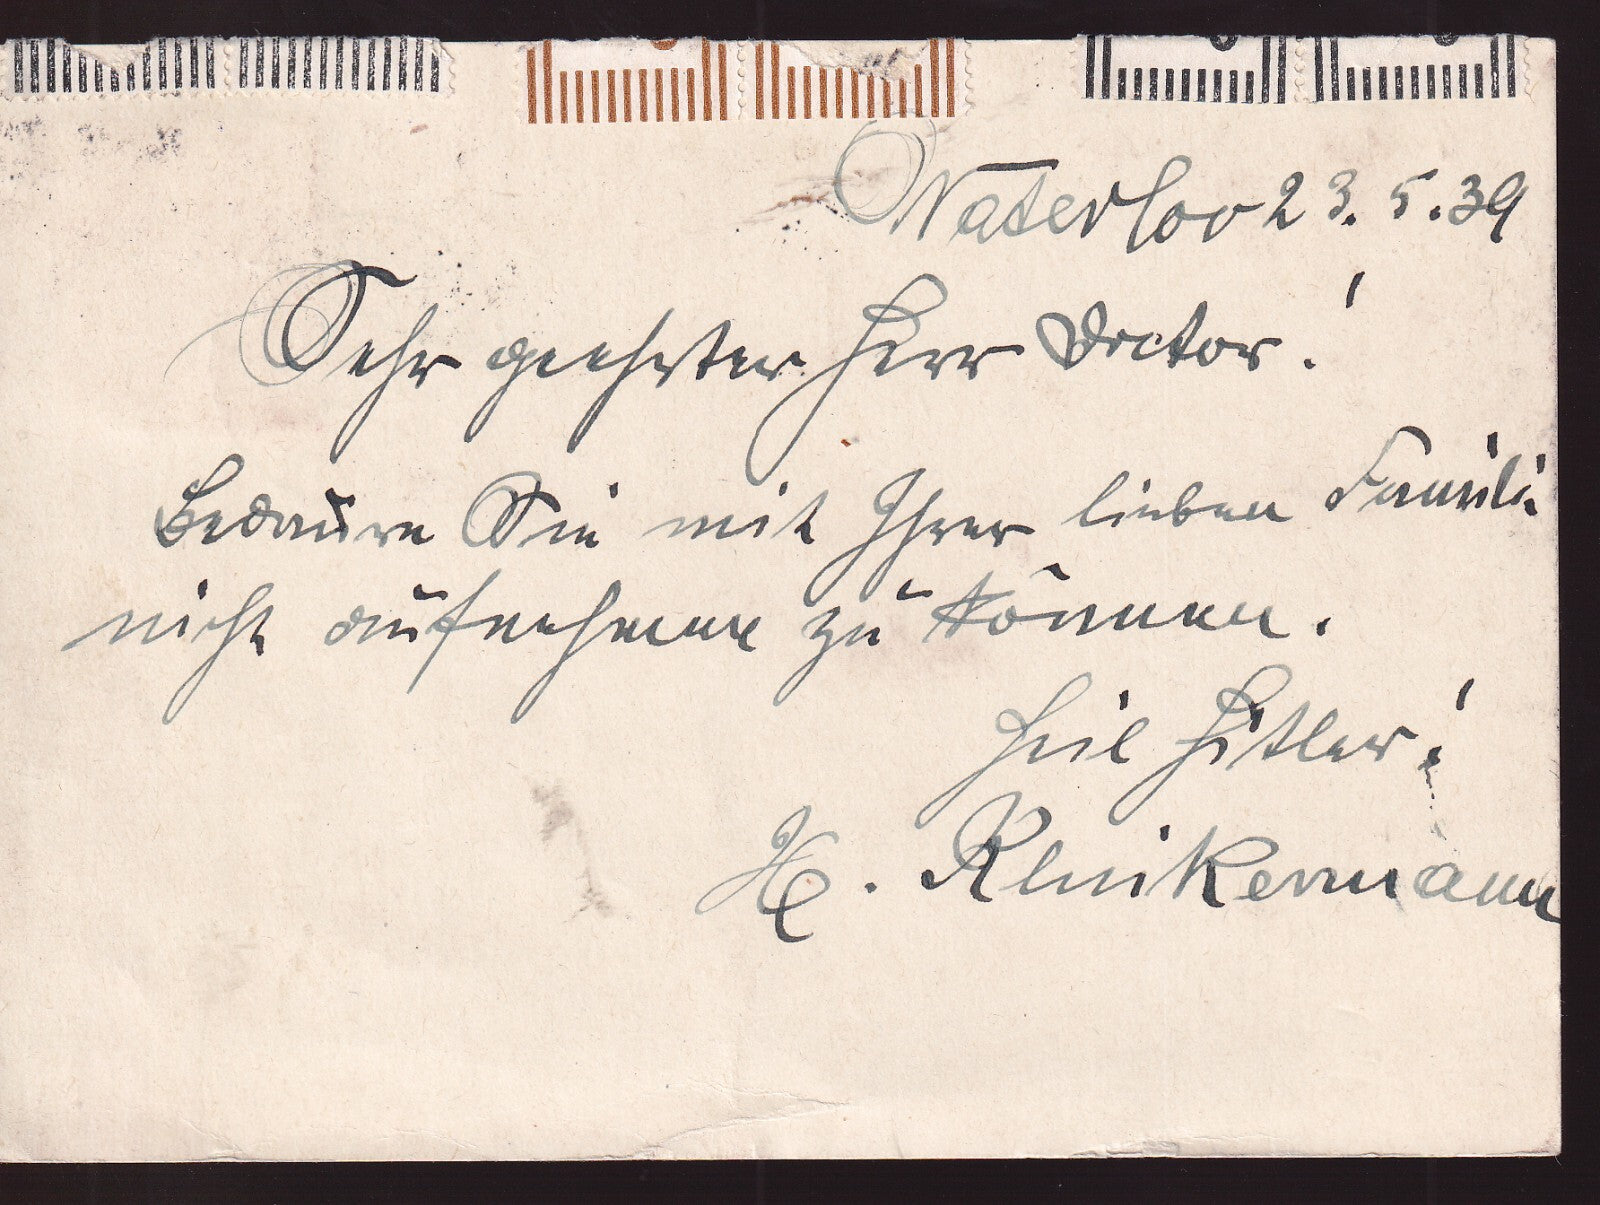 Waterloo 23.5.39
Sehr geehrter Herr Doctor!
Bedaure Sie mit Ihrer lieben Famili
nicht aufnehmen zu können.
Heil Hitler!
H. Klinkermann